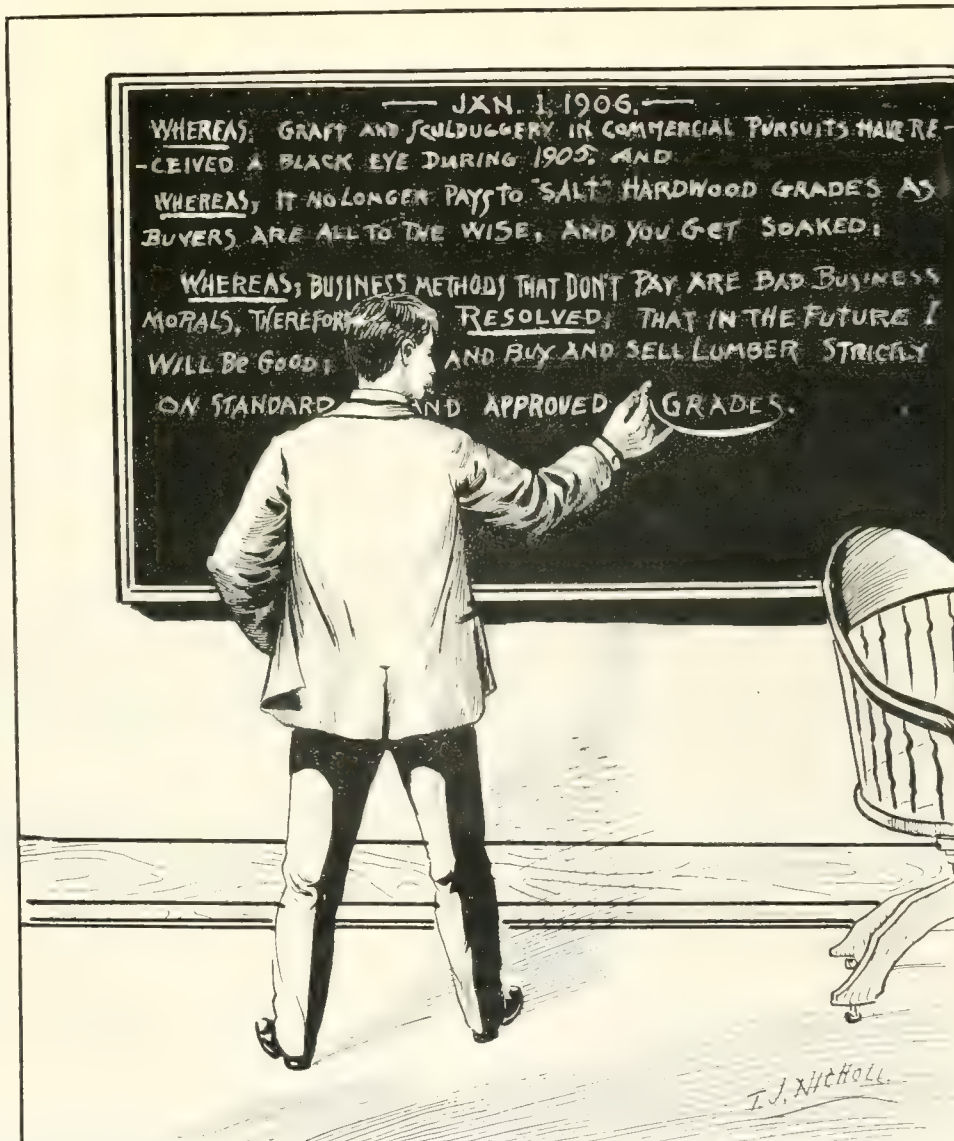 — JAN. 1, 1906. —
WHEREAS, GRAFT AND SCULDUGGERY IN COMMERCIAL PURSUITS HAVE RE-
-CEIVED A BLACK EYE DURING 1905. AND
WHEREAS, IT NO LONGER PAYS TO "SALT" HARDWOOD GRADES AS
BUYERS ARE ALL TO THE WISE, AND YOU GET SOAKED;
WHEREAS, BUSINESS METHODS THAT DON'T PAY ARE BAD BUSINESS
MORALS, THEREFOR RESOLVED, THAT IN THE FUTURE I
WILL BE GOOD; AND BUY AND SELL LUMBER STRICTLY
ON STANDARD AND APPROVED GRADES.
T. J. NICHOLL.